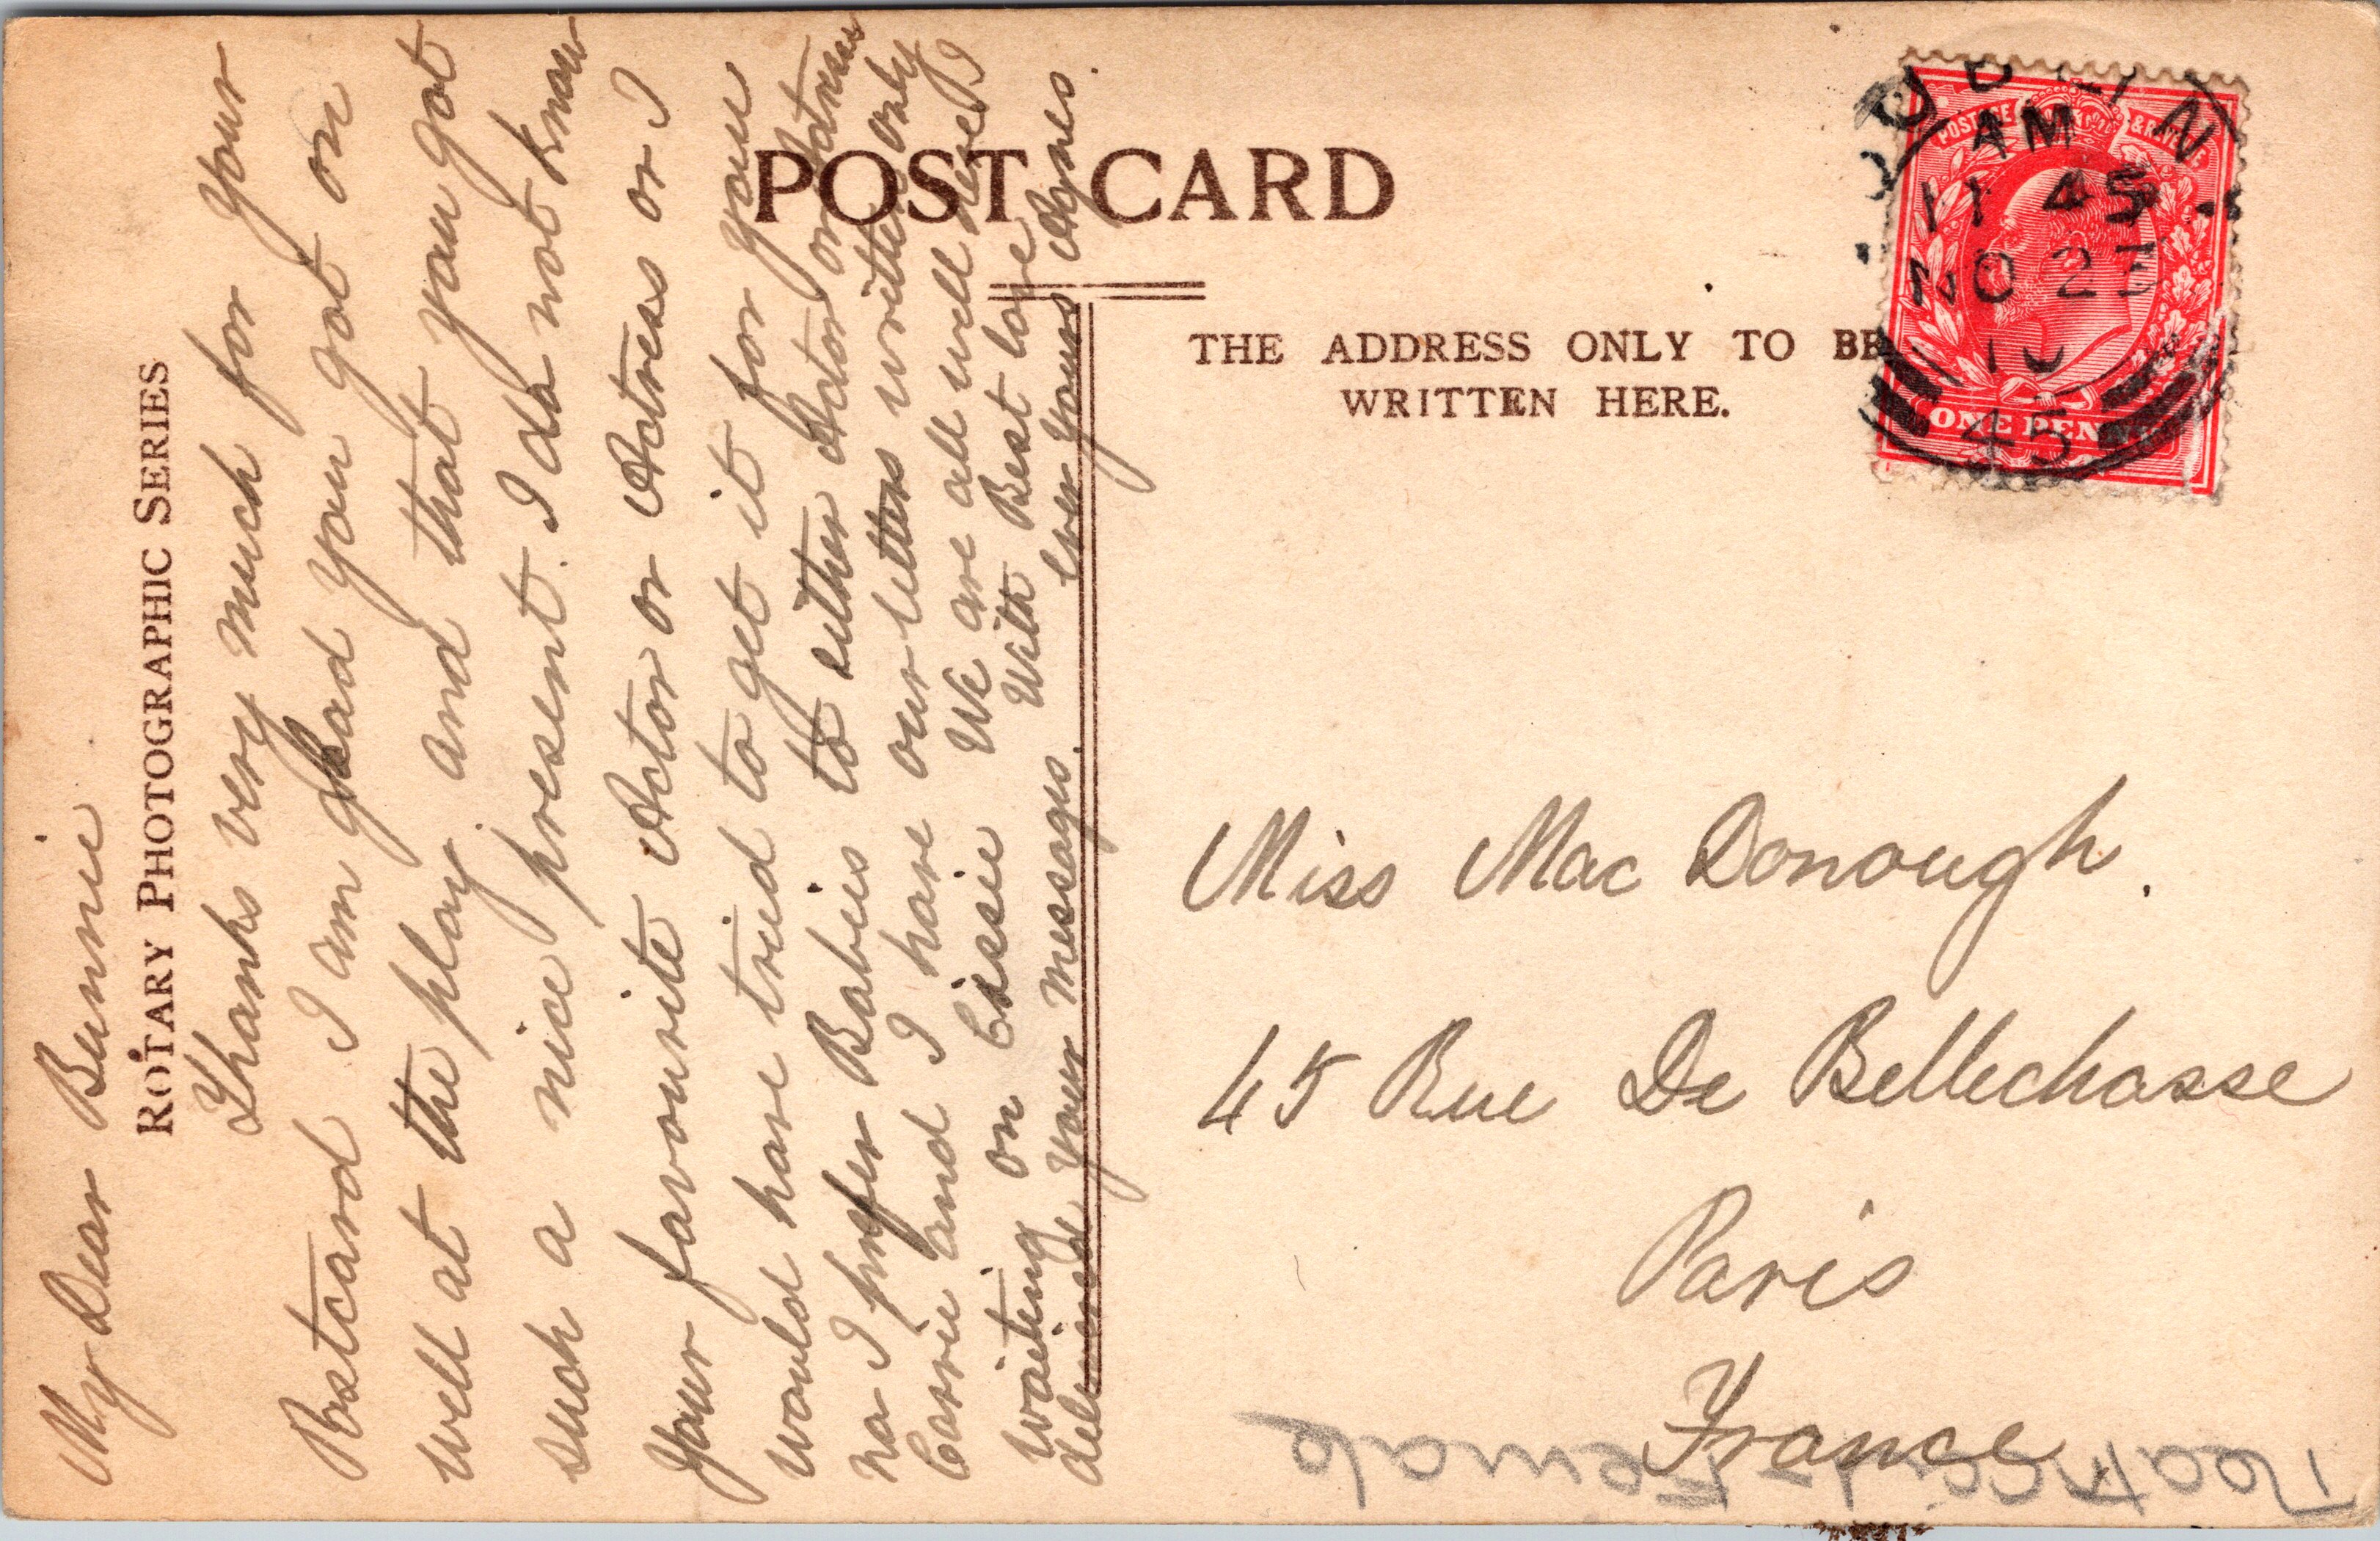 My Dear Bunnie
ROTARY PHOTOGRAPHIC SERIES
Thanks very much for your
Postcard I am ghlad you got on
well at the play. and that you got
such a nice present. I do not know
your favourite Actor or Actress or I
would have tried to get it for you
no I prefer Babies to either Actor or Actress
Carrie and I have our letters written only
waiting on Cissie We are all well here I
delivered your messages. With Best love
Ever yours Agnes.
POST CARD
THE ADDRESS ONLY TO BE
WRITTEN HERE.
DUBLIN
AM
11 45
NO 23
10
45
POSTAGE & REVENUE
ONE PENNY
Miss Mac Donough.
45 Rue De Bellechasse
Paris
France
Theatrical - Female